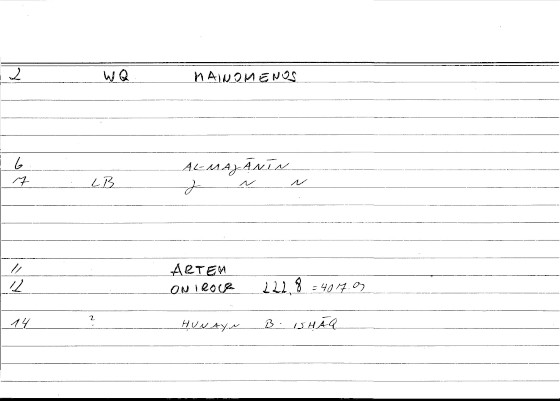 2 WQ MAINOMENOS
6 AL-MAǧĀNĪN
7 LB ǧ N N
11 ARTEM
12 ONIROCR 222,8 =407
14 ? HUNAYN B. ISHĀQ